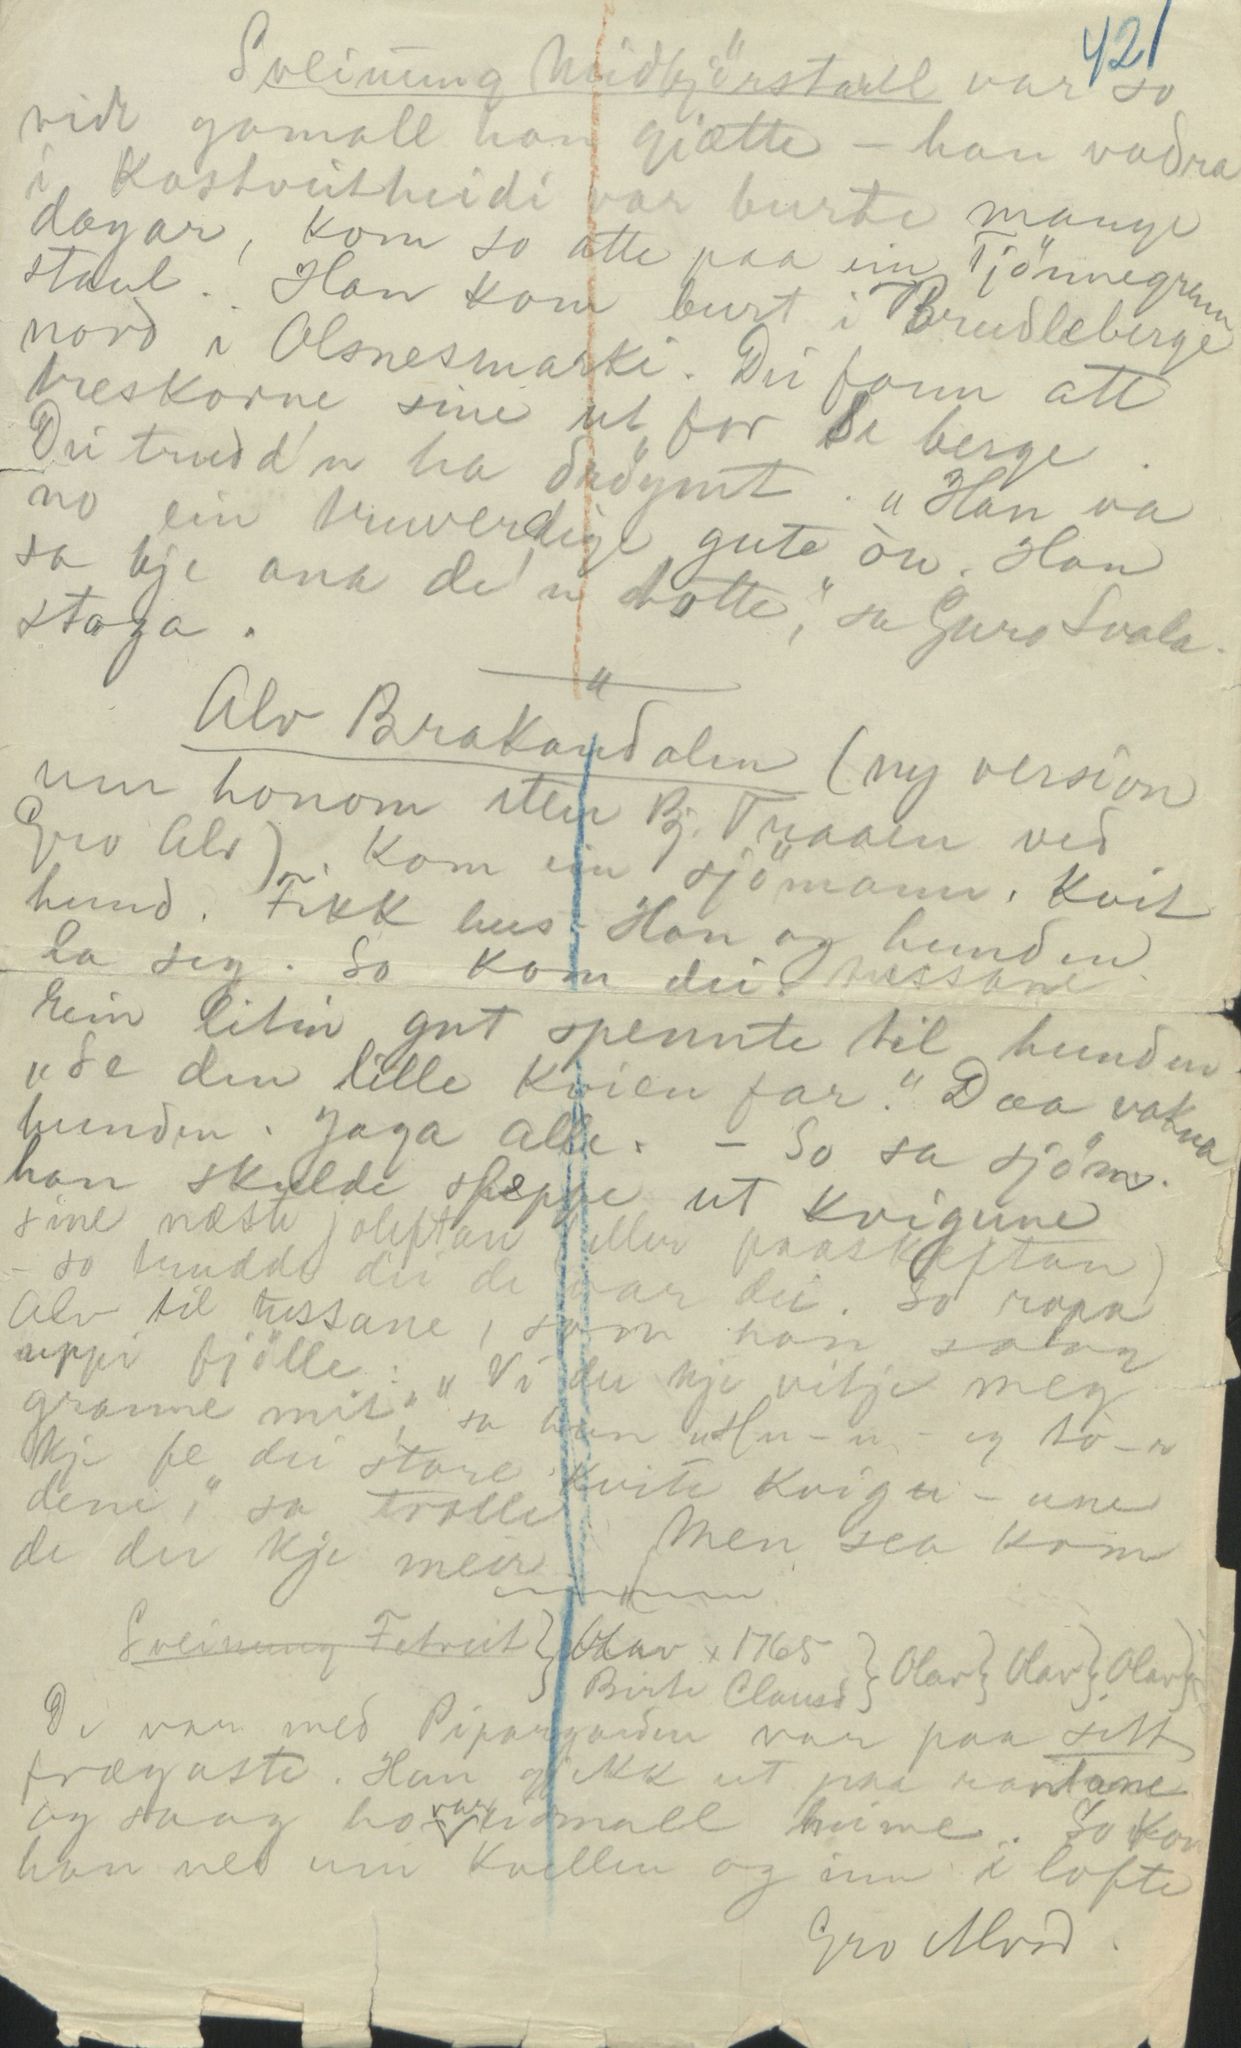 421
Sveinung Midbjörstaul var so
vidt gamall han gjætte – han vadra
i Kostveitheidi var burte mange
dagar, kom so atte paa ein Tjönnegrunn
staul. Han kom burt i Brudleberge
nord i Olsnesmarki. Dei fann att
treskorne sine ut for de berge.
Dei trudd'n ha drøymt. "Han va
no ein truverdige gute òu. Han
sa kje ana de'n totte," sa Guro Svala-
stoga.
Alv Brakandalen (ny version
um honom iten Bj. Traaen ved
Gro Alv). Kom ein sjömann. Kvit
hund. Fikk hus. Han og hunden
la seg. So kom dei. tussane
Ein litin gut spennte til hunden.
"Se den lille kvien far." Daa vakna
hunden. Jaga alle. – So sa sjöm.
han skulde sleppe ut kvigune
sine næste joleftan (eller paaskeftan)
– so trudde dei de var dei. So ropa
Alv til tussane, som han saag
uppi fjölle: "Vi du kje vitje meg
granne mit," sa han "Hu-u- eg tò-r
kje fe dei store kvite kvigu-une
deni," sa trolle. Men sea kom
de der kje meir
Sveinung Fetveit } Olav x 1765
Birte Clausd } Olav } Olav } Olav }
De var med Pipargarden var paa sitt
frægaste. Han gjikk ut paa rantane
og saag ho var heime. So kom
han ned um kvellen og inn i lofte
Gro Alvsd.